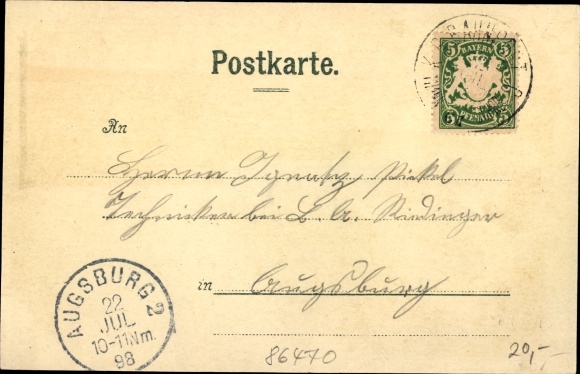 Postkarte.
BAYERN
5 5
PFENNIG
An
Herrn Ignatz Pickl
Techniker bei L. A. Riedinger
in Augsburg
AUGSBURG 2
22
JUL
10-11 Nm.
98
86470
20,-